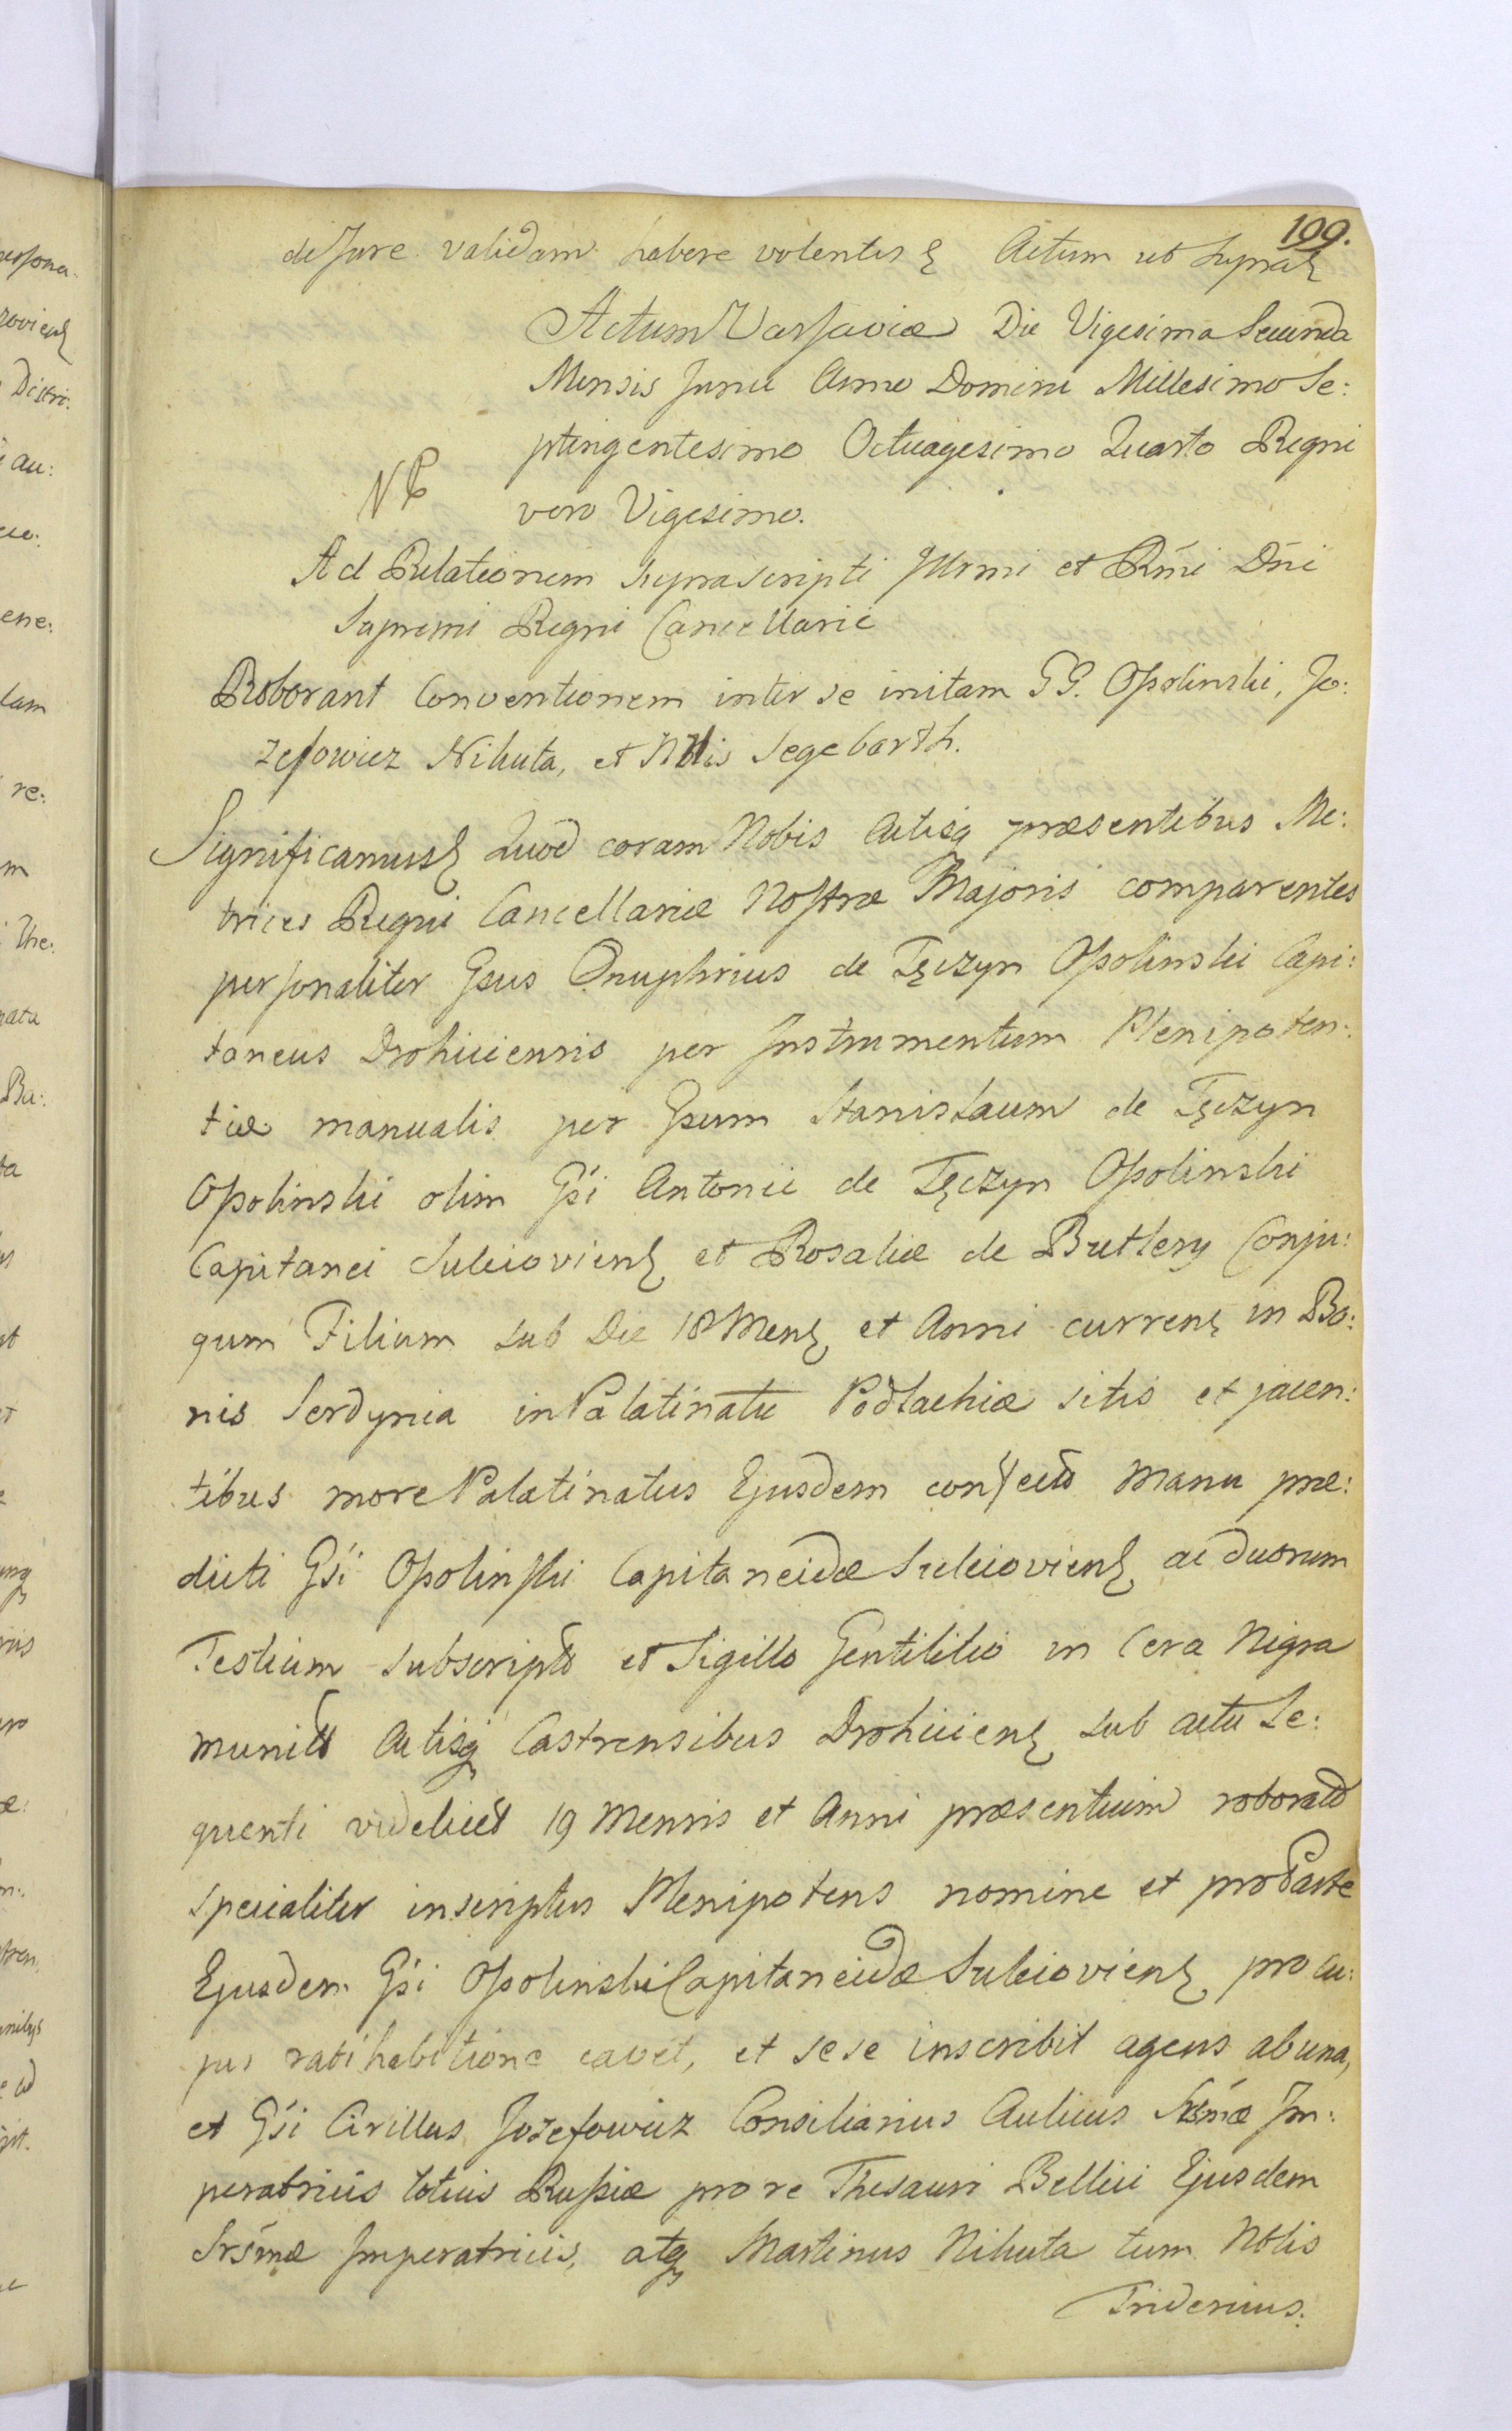 199.
de Jure validam habere volentes Actum ut Supra
Actum Varsaviæ Die Vigesima Secunda
Mensis Junii Anno Domini Millesimo Se:
ptingentesimo Octuagesimo Quarto Regni
vero Vigesimo.
Ad Relationem Suprascripti Illrmi et Rmi Dni
Supremi Regni Cancellarii
Roborant Conventionem inter se initam GG. Ossolinski, Jo:
zefowicz Nikuta, et Nblis Segebarth.
Significamus Quod coram Nobis Actisq præsentibus Me:
trices Regni Cancellariæ Nostræ Majoris comparentes
personaliter Gsus Onuphrius de Tęczyn Ossolinski Capi:
taneus Drohiciensis per Instrumentum Plenipoten:
tiæ manualis per Gsum Stanislaum de Tęczyn
Ossolinski olim Gsi Antonii de Tęczyn Ossolinski
Capitanei Sulejoviens et Rosaliæ de Butlery Conju:
gum Filium sub Die 18 Mens et Anni currens in Bo:
nis Serdynia in Palatinatu Podlachiæ sitis et jacen:
tibus more Palatinatus Ejusdem confectæ Manu præ:
dicti Gsi Ossolinski Capitaneidæ Sulejoviens ac duorum
Testium subscriptæ et Sigillo Gentililio in Cera Nigra
munitæ Actisq Castrensibus Drohiciens sub actu Se:
quenti videlicet 19 Mensis et Anni præsentium roboratæ
specialiter inscriptus Plenipotens nomine et pro Parte
Ejusdem Gsi Ossolinski Capitaneidæ Sulejoviens pro cu:
jus ratihabitione cavet, et sese inscribit agens ab una,
et Gsi Cirillus Jozefowicz Consiliarius Aulicus Srsmæ Im:
peratricis totius Russiæ pro re Thesauri Bellici Ejusdem
Srsmæ Imperatricis, atq Martinus Nikuta tum Nblis
Fridericus.